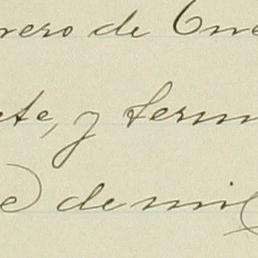 rero de Ene
te, y term
e de mil